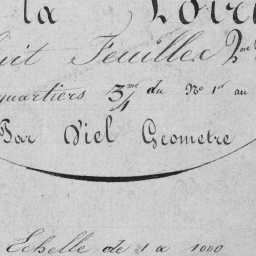 la Loire
uit Feuilles 2me
quartiers 3/4 me du No 1er au
Par Diel Geometre
Echelle de 1 a 1000